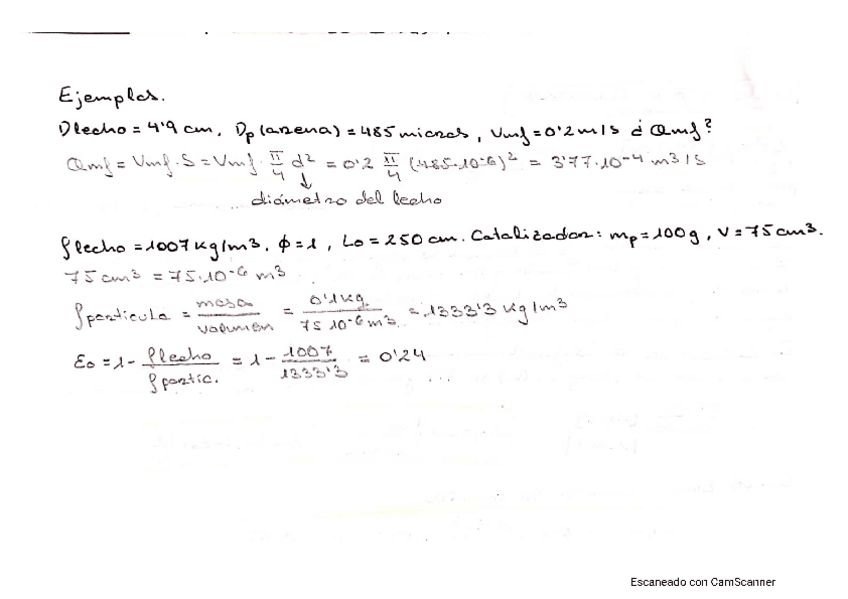 Ejemplos.
Dlecho = 4'9 cm, Dp (arena) = 485 micras, Vmf = 0'2 m/s ¿Qmf?
Qmf = Vmf · S = Vmf · π/4 d² = 0'2 π/4 (485·10⁻⁶)² = 3'77·10⁻⁴ m³/s
↓
diámetro del lecho
ρlecho = 1007 kg/m³, ϕ = 1, Lo = 250 cm. Catalizador: mp = 100 g, V = 75 cm³.
75 cm³ = 75·10⁻⁶ m³
ρpartícula = masa/volumen = 0'1 kg/75 10⁻⁶ m³ = 1333'3 kg/m³
εo = 1 - ρlecho/ρpartic. = 1 - 1007/1333'3 = 0'24
Escaneado con CamScanner